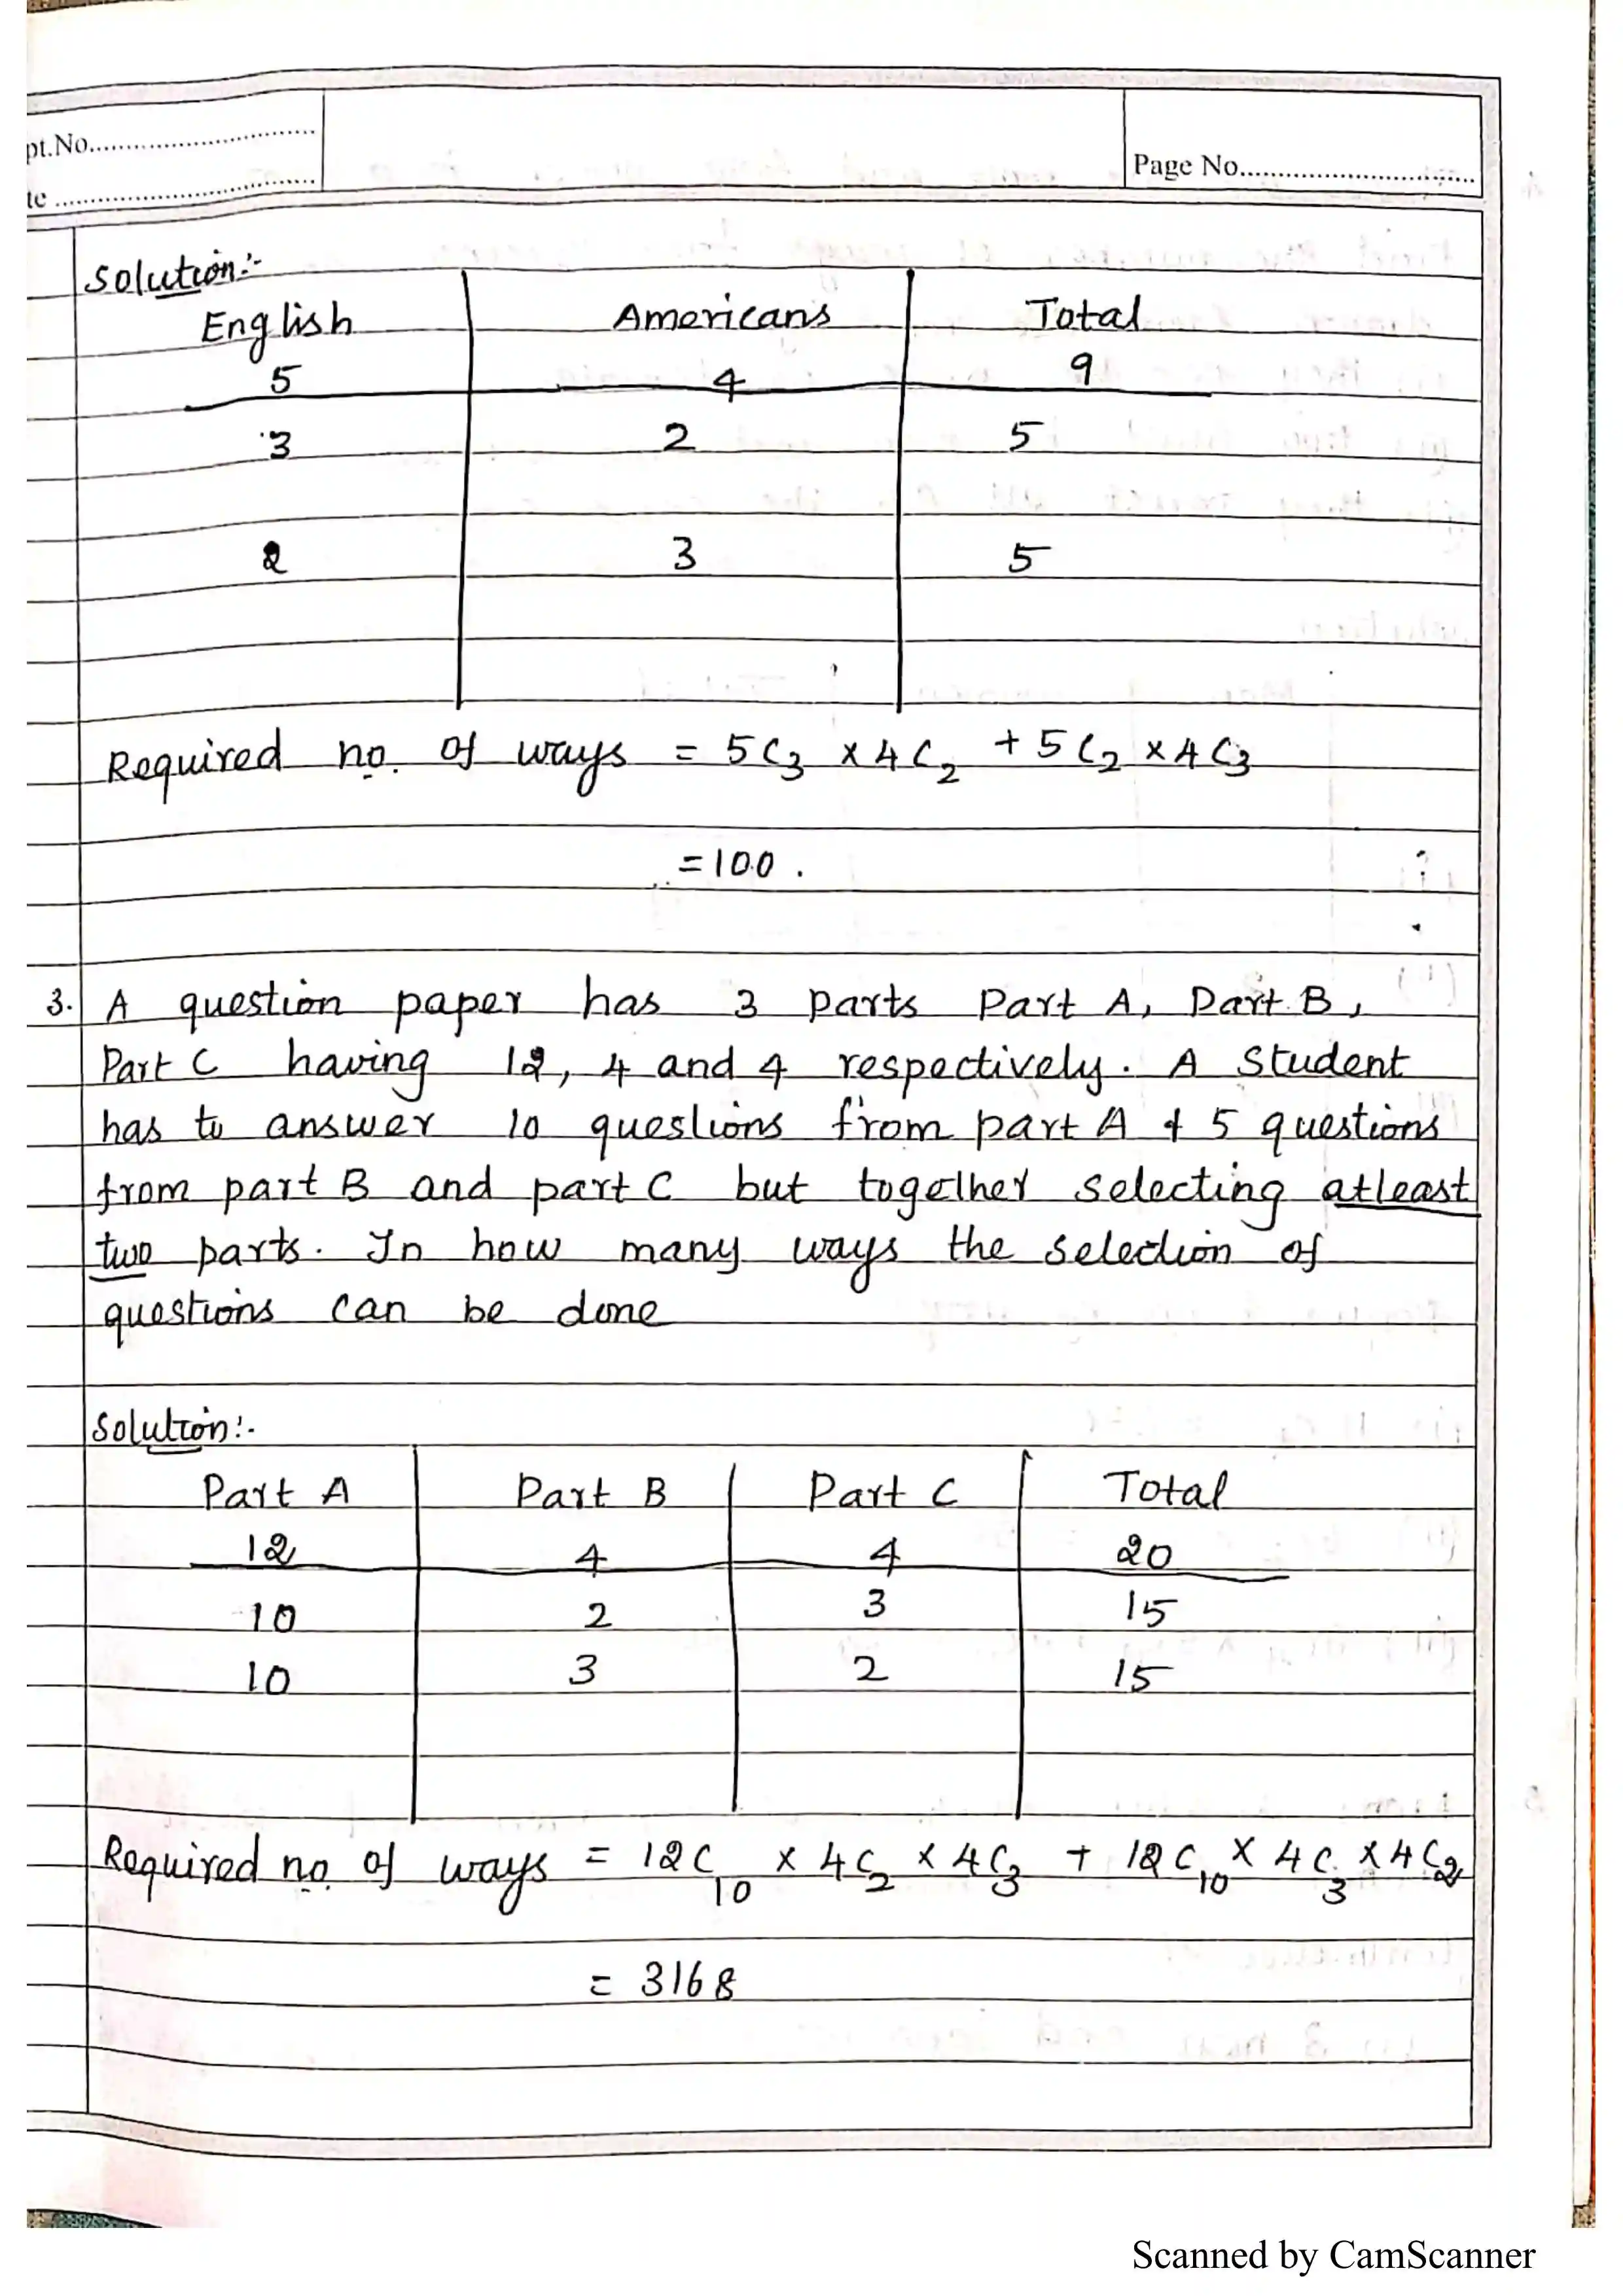 pt.No.................................
Page No.............................
te .......................................
Solution:-
English Americans Total
5 4 9
3 2 5
2 3 5
Required no. of ways = 5C3 x 4C2 + 5C2 x 4C3
= 100 .
3. A question paper has 3 parts Part A, Part B,
Part C having 12, 4 and 4 respectively. A Student
has to answer 10 questions from part A & 5 questions
from part B and part C but together selecting atleast
two parts. In how many ways the selection of
questions can be done
Solution:-
Part A Part B Part C Total
12 4 4 20
10 2 3 15
10 3 2 15
Required no. of ways = 12C10 x 4C2 x 4C3 + 12C10 x 4C3 x 4C2
= 3168
Scanned by CamScanner